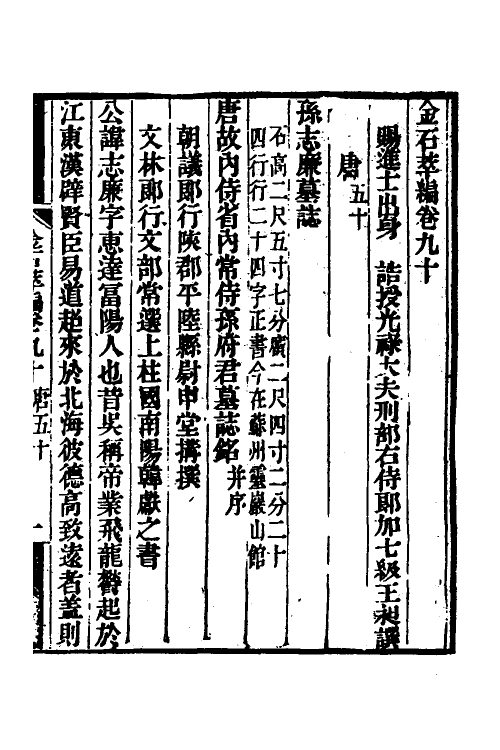 金石萃編卷九十
賜進士出身 誥授光祿大夫刑部右侍郎加七級王昶譔
唐五十
孫志廉墓誌
石高二尺五寸七分廣二尺四寸二分二十
四行行二十四字正書今在蘇州靈巖山館
唐故內侍省內常侍孫府君墓誌銘并序
朝議郎行陝郡平陸縣尉申堂搆撰
文林郎行文部常選上柱國南陽韓獻之書
公諱志廉字惠達富陽人也昔吳稱帝業飛龍鬱起於
江東漢辟賢臣易道起來於北海彼德高致遠者蓋則
金石萃編卷九十 唐五十 一